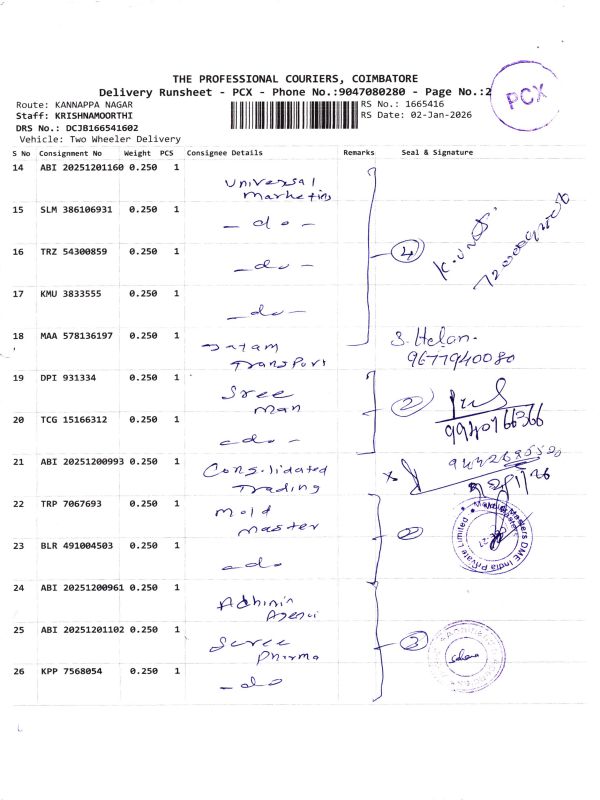 THE PROFESSIONAL COURIERS, COIMBATORE
Delivery Runsheet - PCX - Phone No.:9047080280 - Page No.:2
PCX
Route: KANNAPPA NAGAR
RS No.: 1665416
Staff: KRISHNAMOORTHI
RS Date: 02-Jan-2026
DRS No.: DCJB166541602
Vehicle: Two Wheeler Delivery
S No Consignment No Weight PCS Consignee Details Remarks Seal & Signature
14 ABI 20251201160 0.250 1 Universal Marketing
15 SLM 386106931 0.250 1 - do -
16 TRZ 54300859 0.250 1 - do - 4
17 KMU 3833555 0.250 1 - do -
18 MAA 578136197 0.250 1 Transport
S. Helan.
9677940080
19 DPI 931334 0.250 1 Sree Man 2
9940766366
20 TCG 15166312 0.250 1 - do -
21 ABI 20251200993 0.250 1 Consolidated Trading
22 TRP 7067693 0.250 1 Mold Master 2
Masters DME India Private Limited
23 BLR 491004503 0.250 1 - do
24 ABI 20251200961 0.250 1
25 ABI 20251201102 0.250 1 Sree Pharma 3
26 KPP 7568054 0.250 1 - do